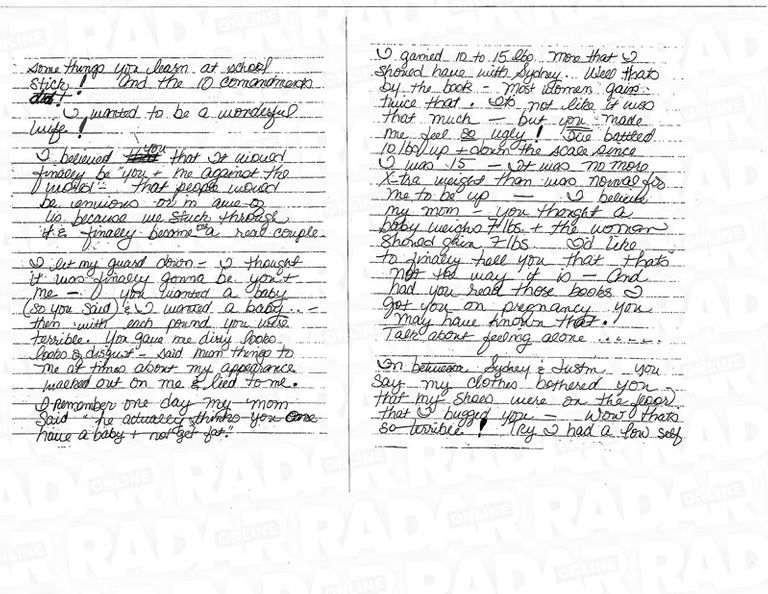 some things you learn at school
stick! And the 10 comandments
did!
I wanted to be a wonderful
wife!
I believed you that it would
finally be "you + me against the
world" - that people would
be envious or in awe of
us because we stuck through
it & finally become a real couple.
I let my guard down - I thought
it was finally gonna be you +
me - you wanted a baby
(so you said) & I wanted a baby . . -
then with each pound you were
terrible. You gave me dirty looks
looks of disgust - said mean things to
me at times about my appearance
walked out on me & lied to me.
I remember one day my mom
said "he actually thinks you can
have a baby + not get fat."
I gained 10 to 15 lbs more that I
should have with Sydney. Well thats
by the book - Most women gain
twice that. Its not like it was
that much - but you made
me feel so ugly! I've battled
10 lbs up + down the scale since
I was 15 - It was no more
X-tra weight than was normal for
me to be up - I believe
my mom - you thought a
baby weighs 7 lbs + the woman
should gain 7 lbs. I'd like
to finally tell you that thats
not the way it is - And
had you read those books I
got you on pregnancy you
may have known that.
Talk about feeling alone ......
In between Sydney & Justin you
say my clothes bothered you
that my shoes were on the floor
that I bugged you - Wow thats
so terrible! Try I had a low self
RADAR ONLINE